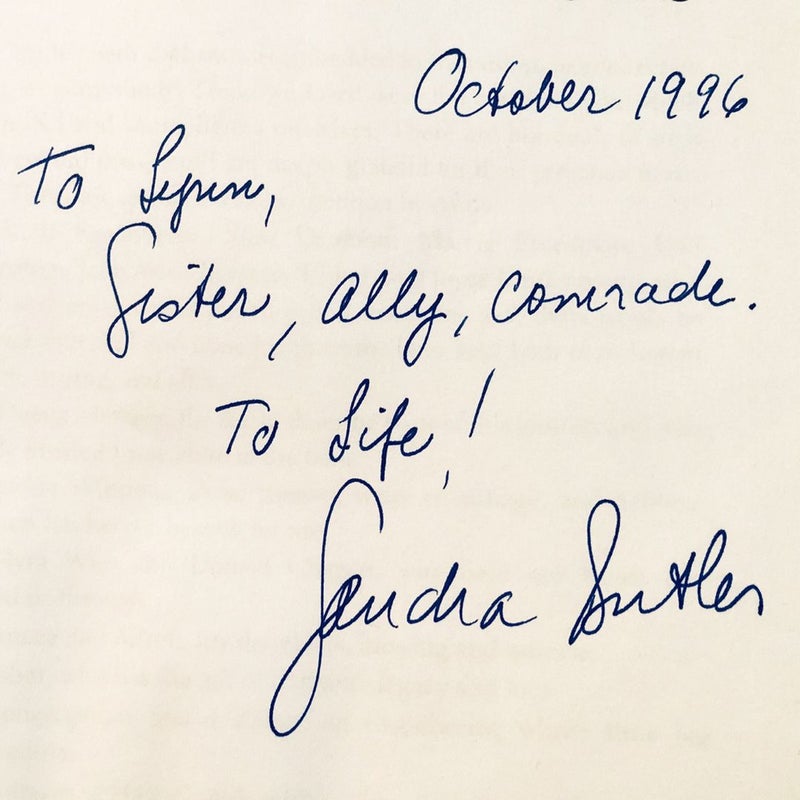 October 1996
To Lynn,
Sister, ally, comrade.
To Life!
Sandra Butler